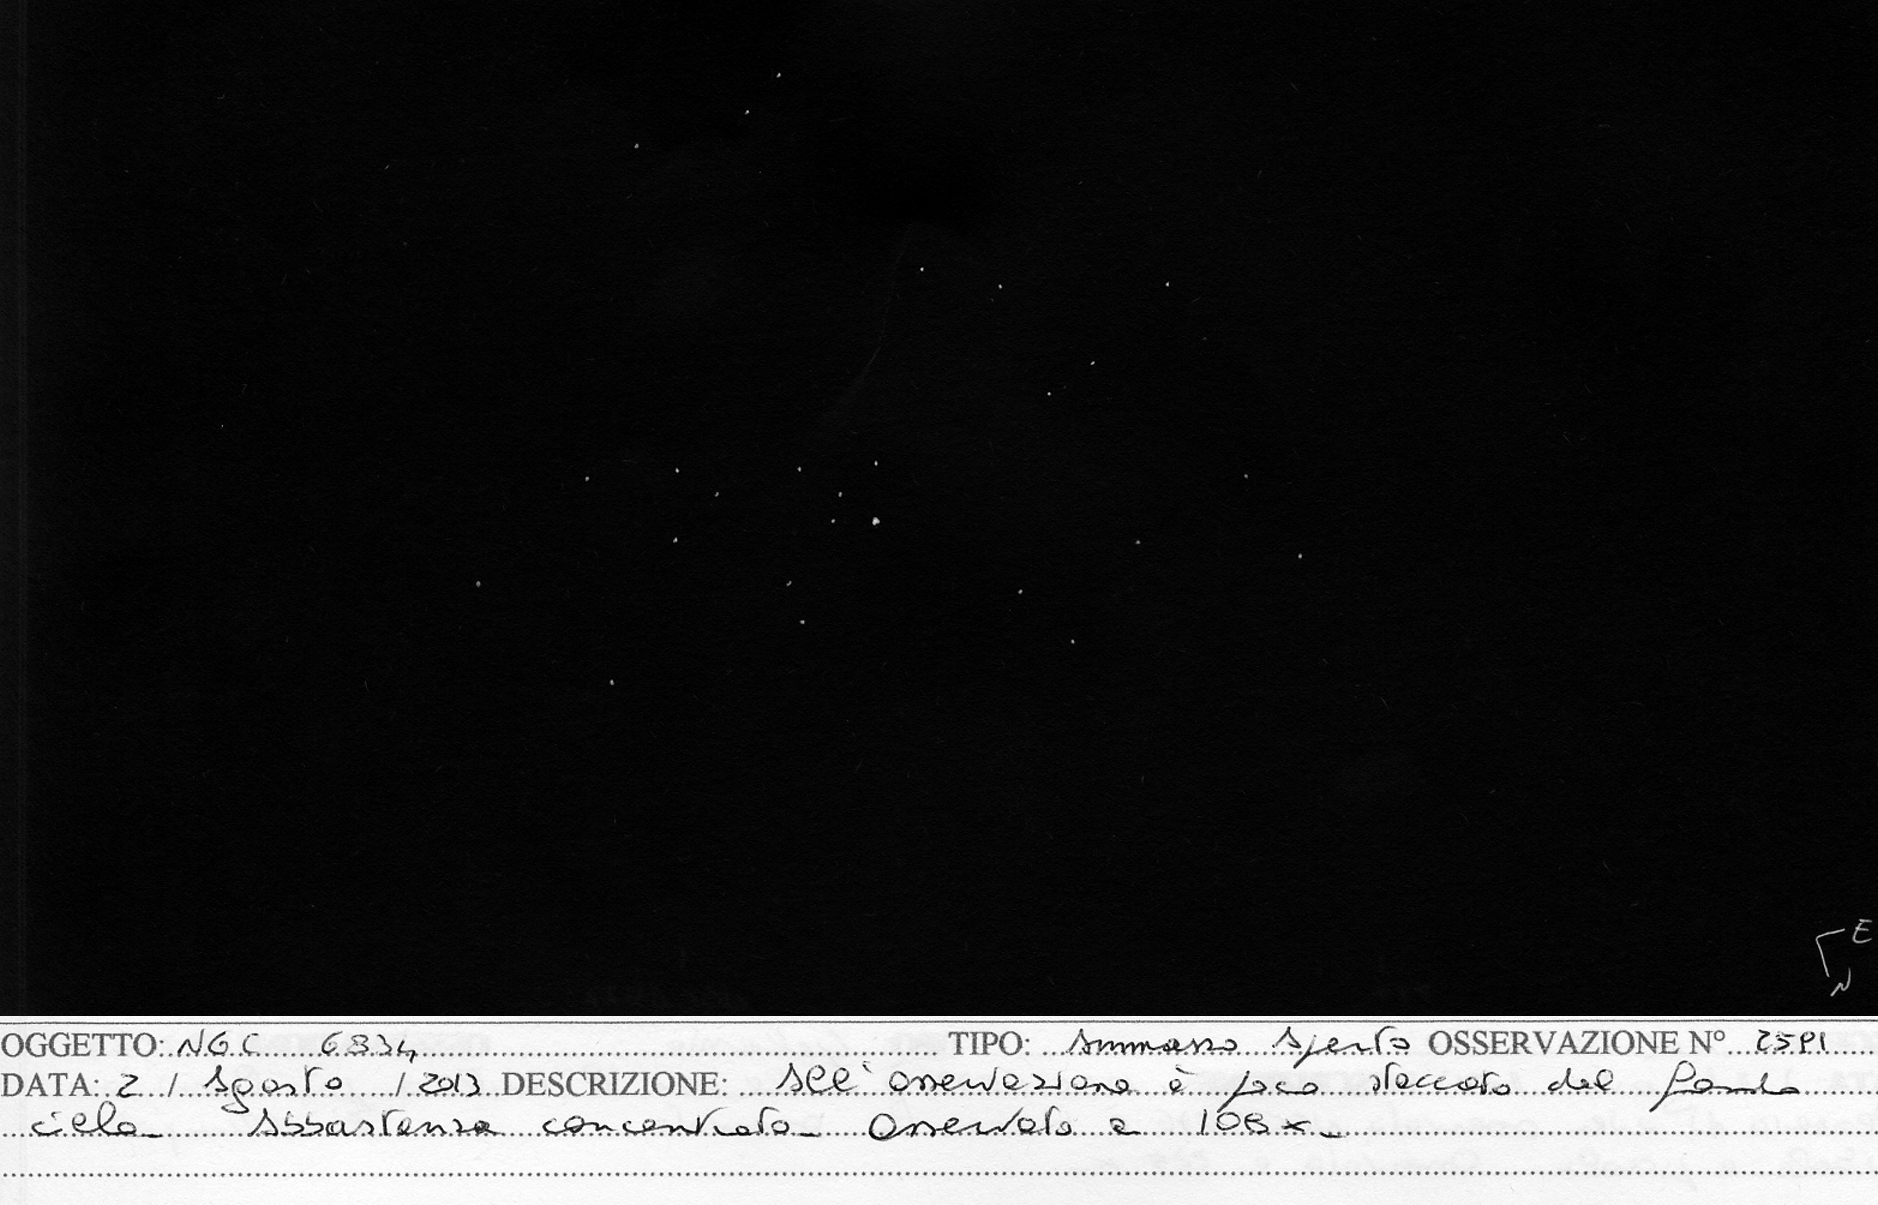 E
N
OGGETTO: NGC 6834 TIPO: Ammasso Aperto OSSERVAZIONE N°
DATA: 2 / Agosto / 2013 DESCRIZIONE: All'osservazione è poco staccato dal fondo
cielo. Abbastanza concentrato. Osservato a 108x.